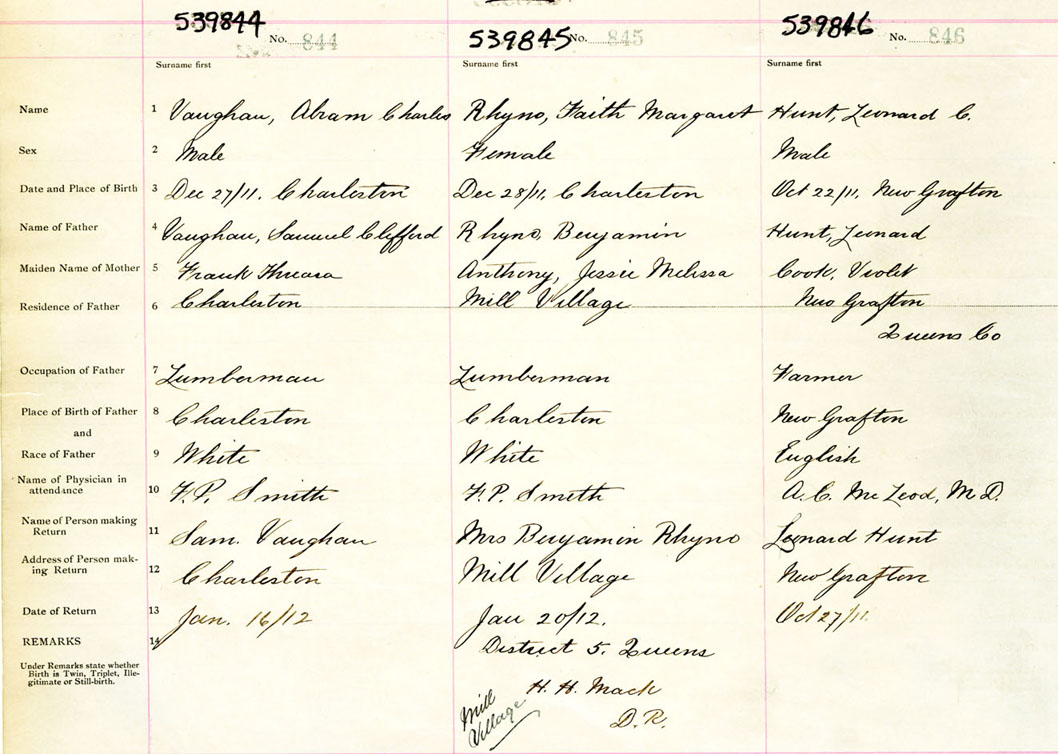 539844 No. 844 539845 No. 845 539846 No. 846
Surname first Surname first Surname first
Name 1 Vaughan, Abram Charles Rhyno, Faith Margaret Hunt, Leonard C.
Sex 2 Male Female Male
Date and Place of Birth 3 Dec 27/11. Charleston Dec 28/11, Charleston Oct 22/11, New Grafton
Name of Father 4 Vaughan, Samuel Clifford Rhyno, Benjamin Hunt, Leonard
Maiden Name of Mother 5 Frank Anthony, Jessie Melissa Cook, Violet
Residence of Father 6 Charleston Mill Village New Grafton
Queens Co
Occupation of Father 7 Lumberman Lumberman Farmer
Place of Birth of Father 8 Charleston Charleston New Grafton
and
Race of Father 9 White White English
Name of Physician in
attendance 10 F.P. Smith F.P. Smith A.C. McLeod, M.D.
Name of Person making
Return 11 Sam. Vaughan Mrs Benjamin Rhyno Leonard Hunt
Address of Person mak-
ing Return 12 Charleston Mill Village New Grafton
Date of Return 13 Jan. 16/12 Jan 20/12. Oct 27/11.
REMARKS 14 District 5. Queens
Under Remarks state whether
Birth is Twin, Triplet, Ille-
gitimate or Still-birth.
H. H. Mack
D.R.
Mill
Village